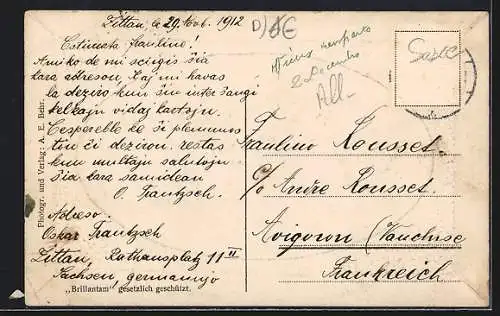 Zittau la 29. Nov. 1912
Estimata fraulino!
Amiko de mi sciigis ŝia
kara adreson. Kaj mi havas
la deziro kun ŝin interŝanĝi
kelkajn vidajkartojn.
Ĉe
espereble ke ŝi plenumos
tiu ĉi deziron. restas
kun multaju salutoju
ŝia kara samidean
O. Frantzsch.
Adreso.
Oskar Frantzsch
Zittau, Rathausplatz 11 II
Sachsen, germanujo
„Brillantam“ gesetzlich geschützt.
Photogr. und Verlag: A. E. Behr,
2 Decembro
All-
Fraulino Rousset
c/o Andre Rousset.
Avignon (Vaucluse
Frankreich